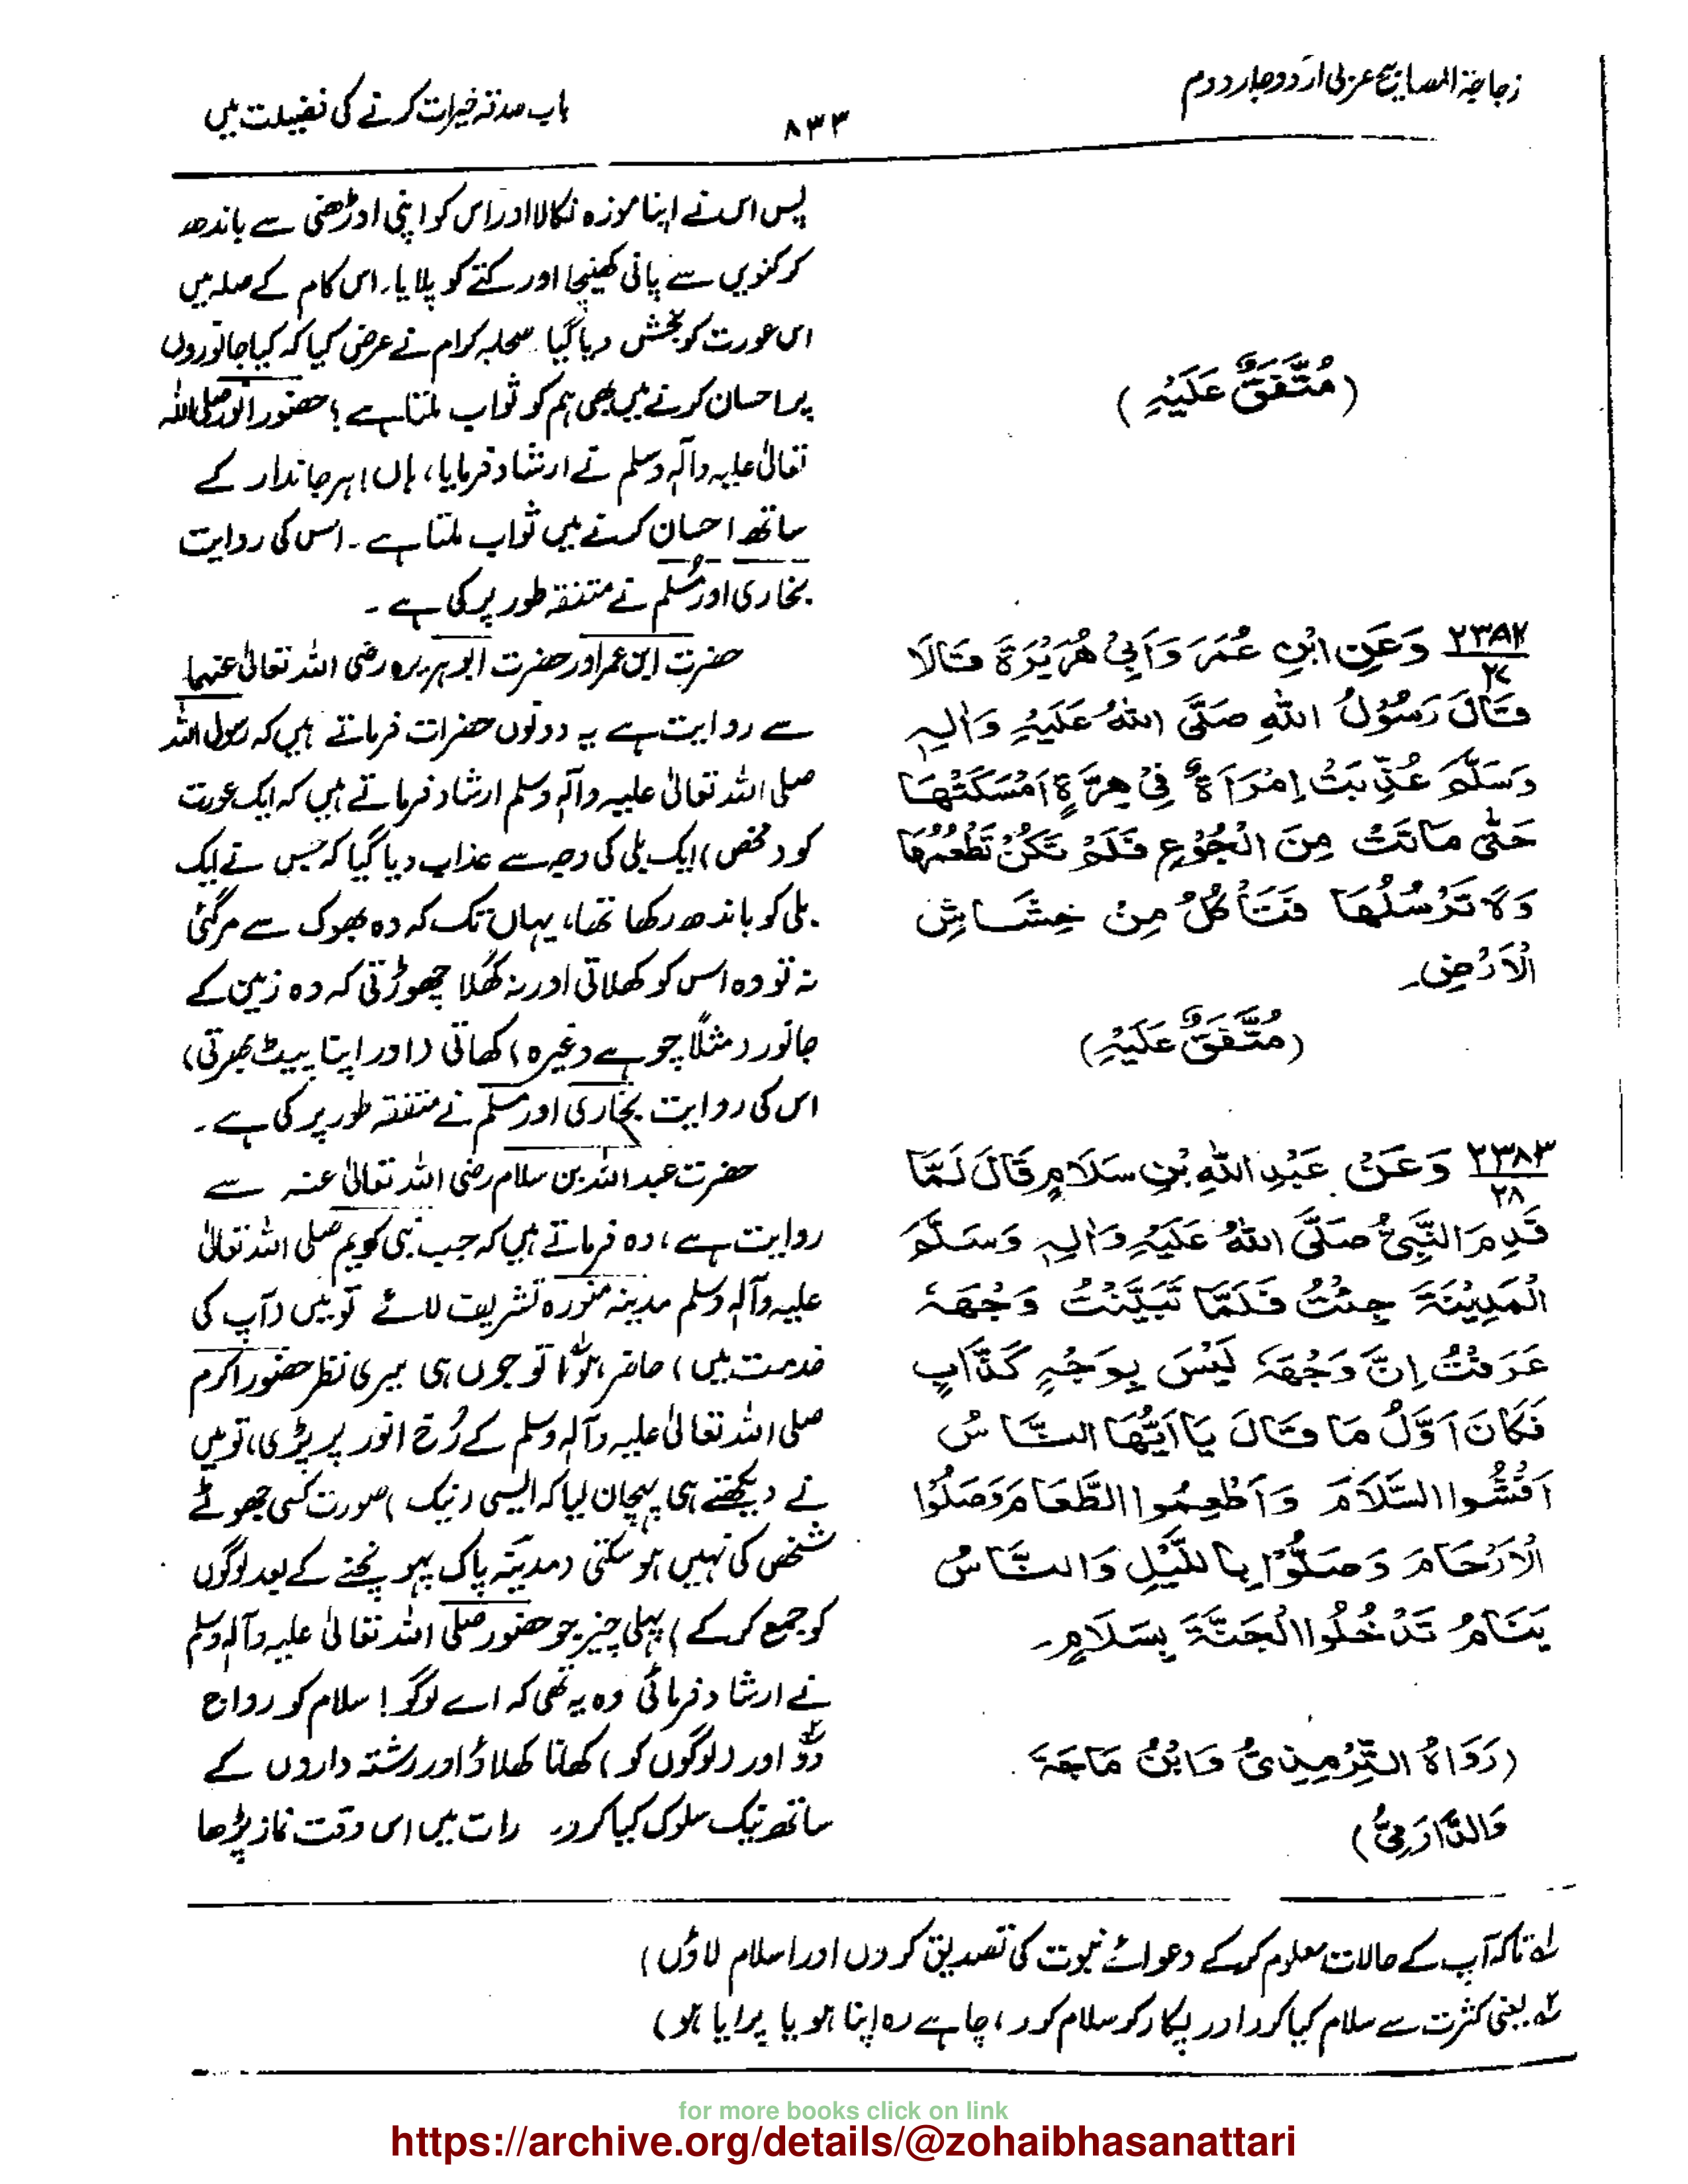 زجاجۃ المصابیح عربی اردو جلد دوم
۸۳۳
باب صدقہ خیرات کرنے کی فضیلت میں
(مُتَّفَقٌ عَلَیْہِ)
۲۳۸۲ وَعَنِ ابْنِ عُمَرَ وَاَبِیْ ھُرَیْرَۃَ قَالَا
۲۷
قَالَ رَسُوْلُ اللّٰہِ صَلَّی اللّٰہُ عَلَیْہِ وَاٰلِہٖ
وَسَلَّمَ عُذِّبَتْ اِمْرَاَۃٌ فِیْ ھِرَّۃٍ اَمْسَکَتْھَا
حَتّٰی مَاتَتْ مِنَ الْجُوْعِ فَلَمْ تَکُنْ تُطْعِمُھَا
وَلَا تُرْسُلُھَا فَتَأْکُلُ مِنْ خِشَاشِ
الْاَرْضِ۔
(مُتَّفَقٌ عَلَیْہِ)
۲۳۸۳ وَعَنْ عَبْدِ اللّٰہِ بْنِ سَلَامٍ قَالَ لَمَّا
۲۸
قَدِمَ النَّبِیُّ صَلَّی اللّٰہُ عَلَیْہِ وَاٰلِہٖ وَسَلَّمَ
الْمَدِیْنَۃَ جِئْتُ فَلَمَّا تَبَیَّنْتُ وَجْھَہٗ
عَرَفْتُ اِنَّ وَجْھَہٗ لَیْسَ بِوَجْہِ کَذَّابٍ
فَکَانَ اَوَّلُ مَا قَالَ یَا اَیُّھَا النَّاسُ
اَفْشُوا السَّلَامَ وَاَطْعِمُوا الطَّعَامَ وَصَلُوْا
الْاَرْحَامَ وَصَلُّوْا بِاللَّیْلِ وَالنَّاسُ
یَنَامُ تَدْخُلُوا الْجَنَّۃَ بِسَلَامٍ۔
(رَوَاہُ التِّرْمِذِیُّ وَابْنُ مَاجَۃَ
وَالدَّارَمِیُّ)
پس اس نے اپنا موزہ نکالا اور اس کو اپنی اوڑھنی سے باندھ
کر کنویں سے پانی کھینچا اور کتے کو پلایا۔ اس کام کے صلہ میں
اس عورت کو بخش دیا گیا۔ صحابہ کرام نے عرض کیا کہ کیا جانوروں
پر احسان کرنے میں بھی ہم کو ثواب ملتا ہے؟ حضور انور صلی اللہ
تعالیٰ علیہ وآلہ وسلم نے ارشاد فرمایا، ہاں! ہر جاندار کے
ساتھ احسان کرنے میں ثواب ملتا ہے۔ اس کی روایت
بخاری اور مسلم نے متفقہ طور پر کی ہے۔
حضرت ابن عمر اور حضرت ابو ہریرہ رضی اللہ تعالیٰ عنہما
سے روایت ہے یہ دونوں حضرات فرماتے ہیں کہ رسول اللہ
صلی اللہ تعالیٰ علیہ وآلہ وسلم ارشاد فرماتے ہیں کہ ایک عورت
کو (محض) ایک بلی کی وجہ سے عذاب دیا گیا کہ جس نے ایک
بلی کو باندھ رکھا تھا، یہاں تک کہ وہ بھوک سے مر گئی
نہ تو وہ اس کو کھلاتی اور نہ کھلا چھوڑتی کہ وہ زمین کے
جانور (مثلاً چوہے وغیرہ) کھاتی (اور اپنا پیٹ بھرتی)
اس کی روایت بخاری اور مسلم نے متفقہ طور پر کی ہے۔
حضرت عبداللہ بن سلام رضی اللہ تعالیٰ عنہ سے
روایت ہے، وہ فرماتے ہیں کہ جب نبی کریم صلی اللہ تعالیٰ
علیہ وآلہ وسلم مدینہ منورہ تشریف لائے تو میں (آپ کی
خدمت میں) حاضر ہوا لہ تو جوں ہی میری نظر حضور اکرم
صلی اللہ تعالیٰ علیہ وآلہ وسلم کے رُخ انور پر پڑی، تو میں
نے دیکھتے ہی پہچان لیا کہ ایسی (نیک) صورت کسی جھوٹے
شخص کی نہیں ہو سکتی (مدینہ پاک پہونچنے کے بعد لوگوں
کو جمع کر کے) پہلی چیز جو حضور صلی اللہ تعالیٰ علیہ وآلہ وسلم
نے ارشاد فرمائی وہ یہ تھی کہ اے لوگو! سلام کو رواج
دو ٢ اور (لوگوں کو) کھانا کھلاؤ اور رشتہ داروں کے
ساتھ نیک سلوک کیا کرو۔ رات میں اس وقت نماز پڑھا
لہ تاکہ آپ کے حالات معلوم کر کے دعوائے نبوت کی تصدیق کروں اور اسلام لاؤں)
٢ یعنی کثرت سے سلام کیا کرو اور پکار کر سلام کرو، چاہے وہ اپنا ہو یا پرایا ہو)
for more books click on link
https://archive.org/details/@zohaibhasanattari